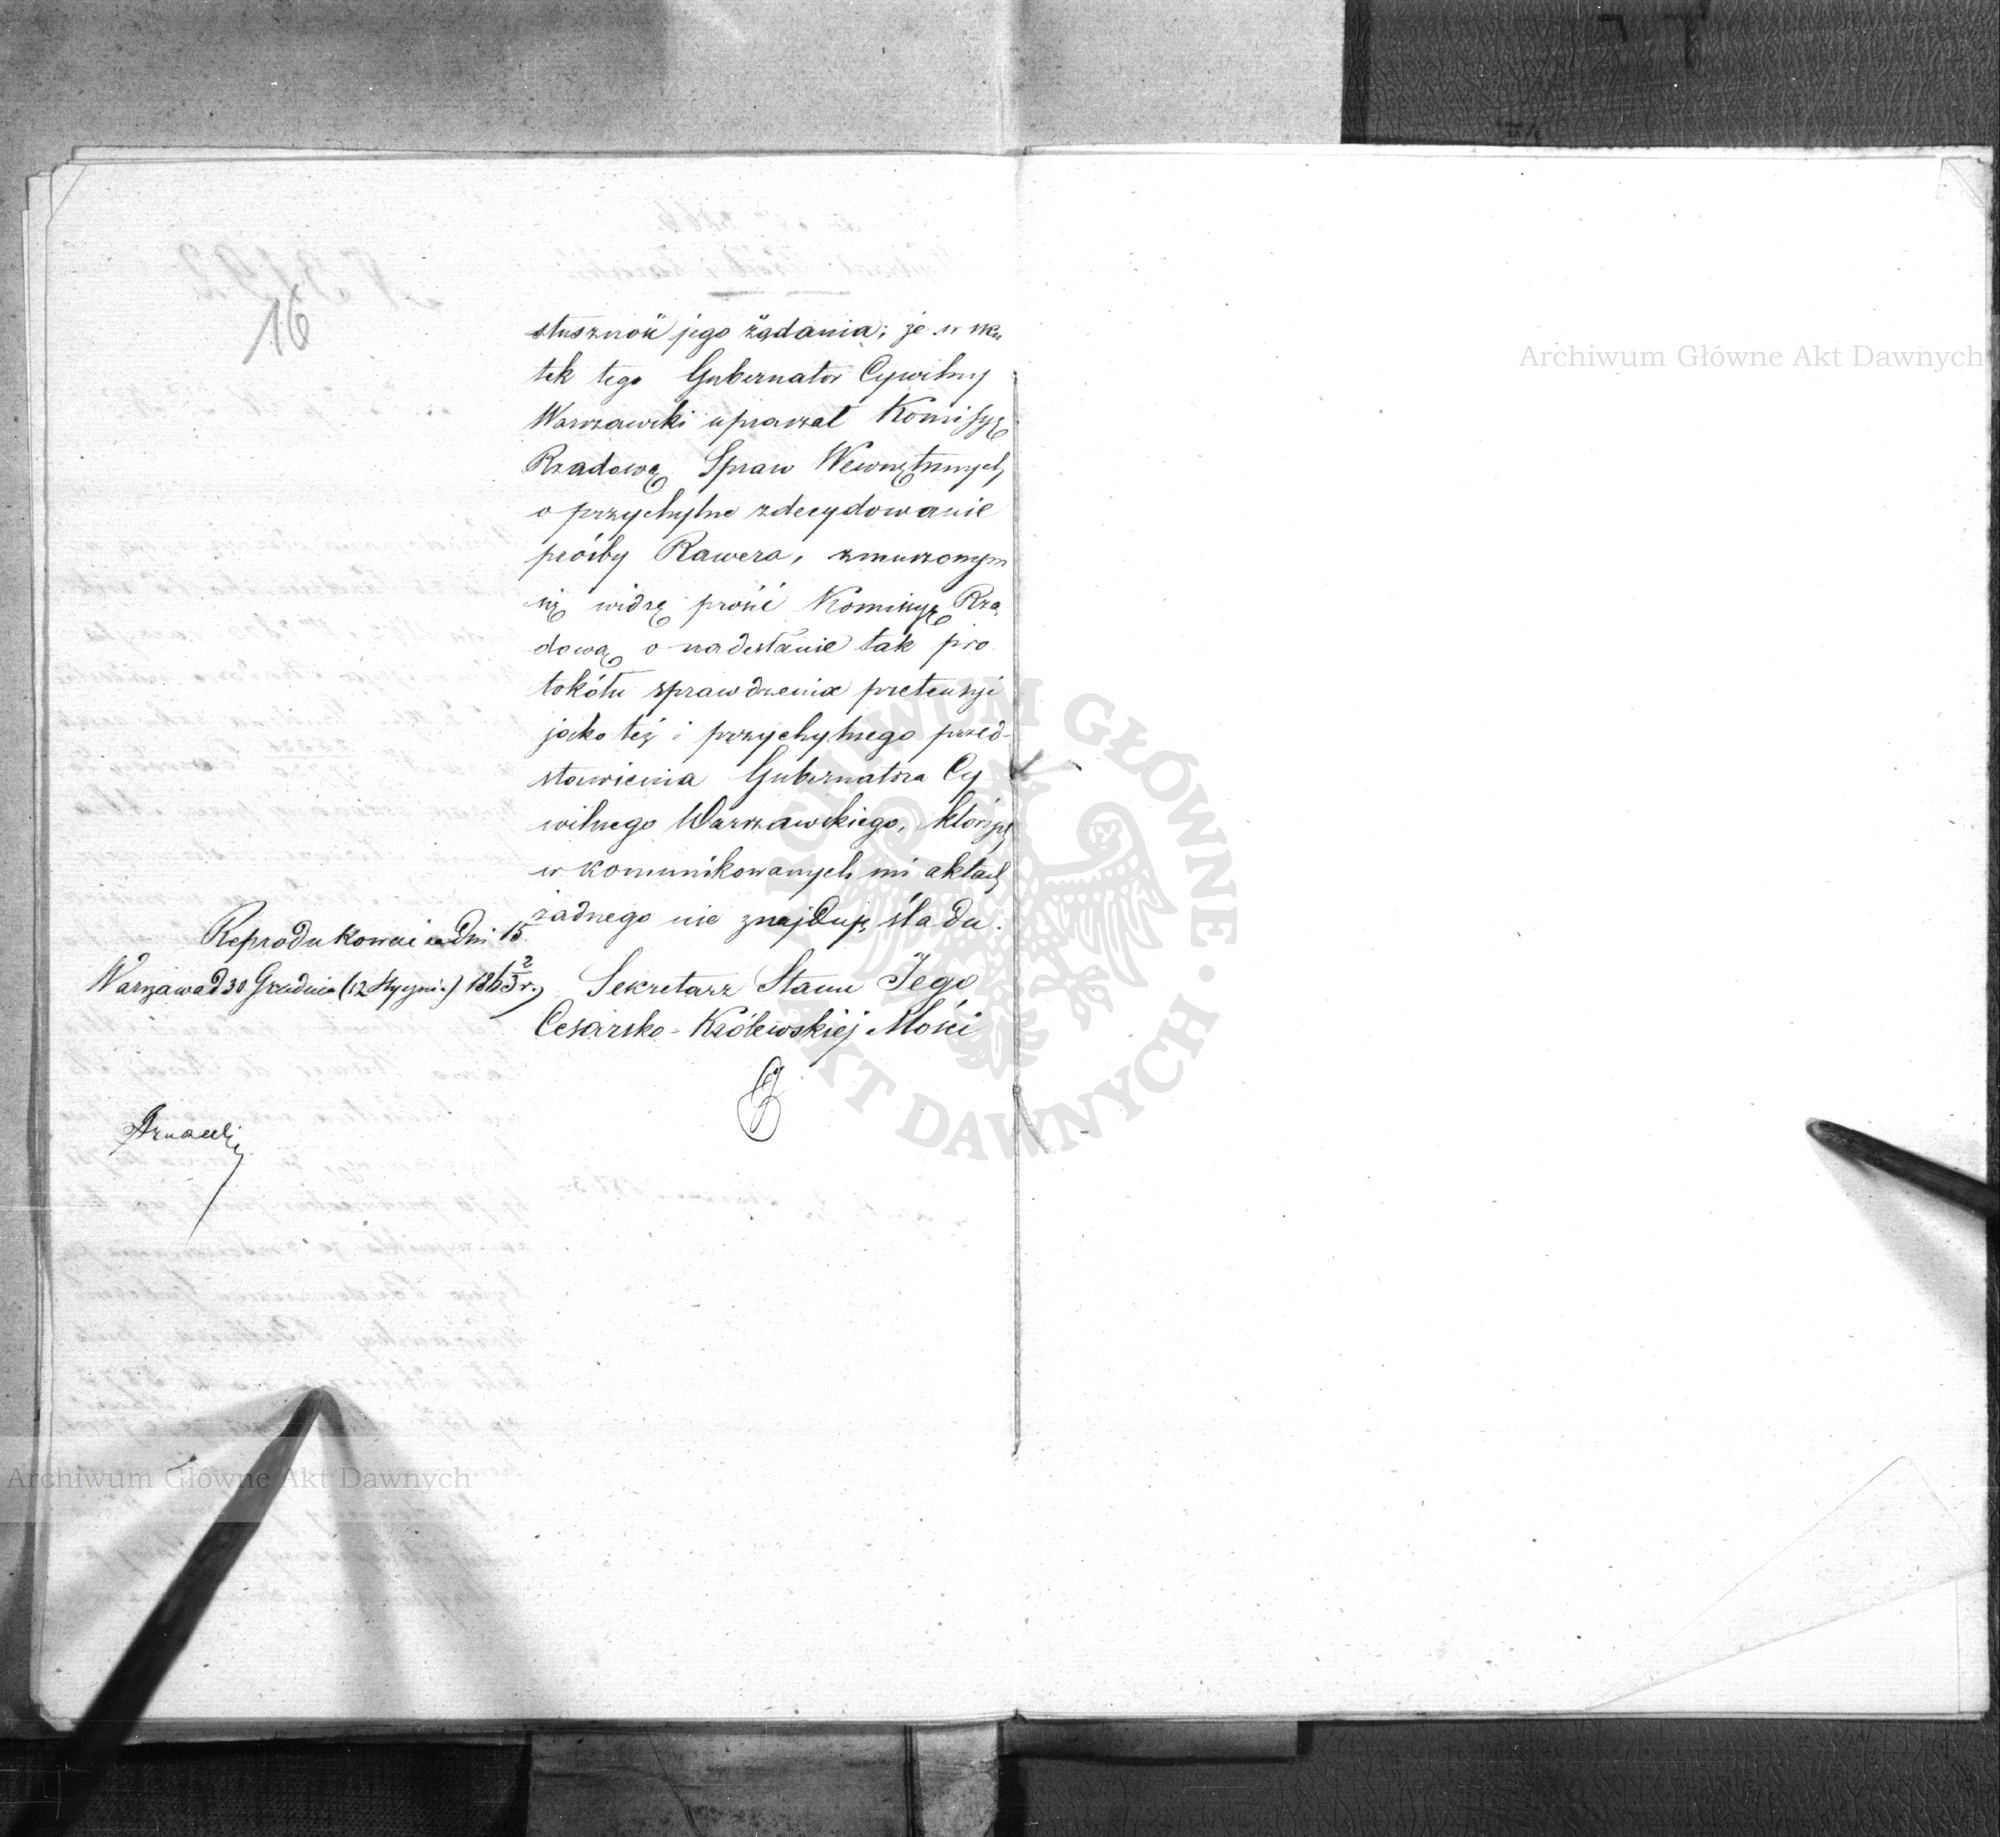 16
słuszność jego żądania; że w sku
tek tego Gubernator Cywilny
Warszawski upraszał Komisyę
Rządową Spraw Wewnętrznych
o przychylne zdecydowanie
prośby Rawera, zmuszonym
się widzę prosić Komisyę Rzą
dową o nadesłanie tak pro
tokółu sprawdzenia pretensyi
jako też i przychylnego przed-
stawienia Gubernatora Cy
wilnego Warszawskiego, których
w komunikowanych mi aktach
żadnego nie znajduję śladu.
Sekretarz Stanu Jego
Cesarsko-Królewskiej Mości
Reprodukować za Dni 15
Warszawa d 30 Grudnia (12 Stycznia) 186 2/3 r.
Archiwum Główne Akt Dawnych
ARCHIWUM GŁÓWNE AKT DAWNYCH
Archiwum Główne Akt Dawnych